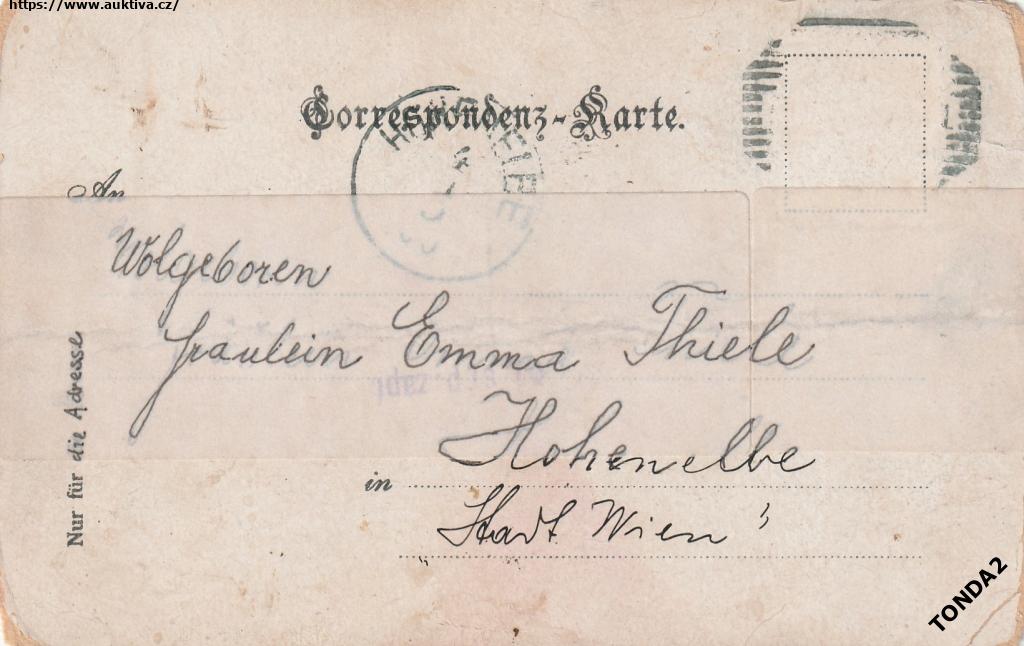 https://www.auktiva.cz/
Correspondenz-Karte.
An
Wolgeboren
Fräulein Emma Thiele
Hohenelbe
in
Stadt Wien"
Nur für die Adresse
TONDA2